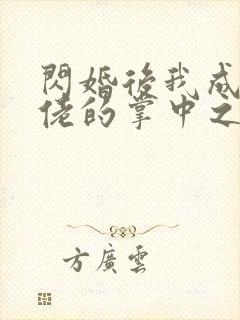 閃婚後我成
佬的掌中之
方廣雲